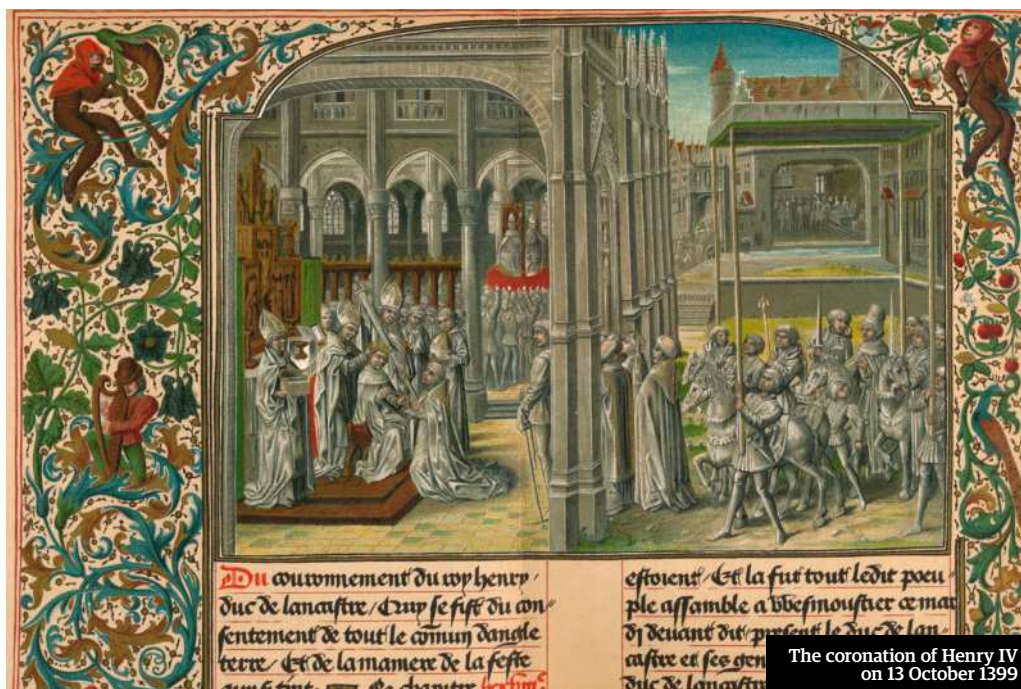 Du couronnement du roy henry /
duc de lancastre / Quy se fist du con-
sentement de tout le cõmun dangle
terre / Et de la maniere de la feste
quy se tint Le chapitre
estoient / Et la fut tout ledit poeu-
ple assamble a wesmoustier ce mar
di deuant dit / present le duc de lan-
castre et ses gen
duc de lancastre
The coronation of Henry IV
on 13 October 1399